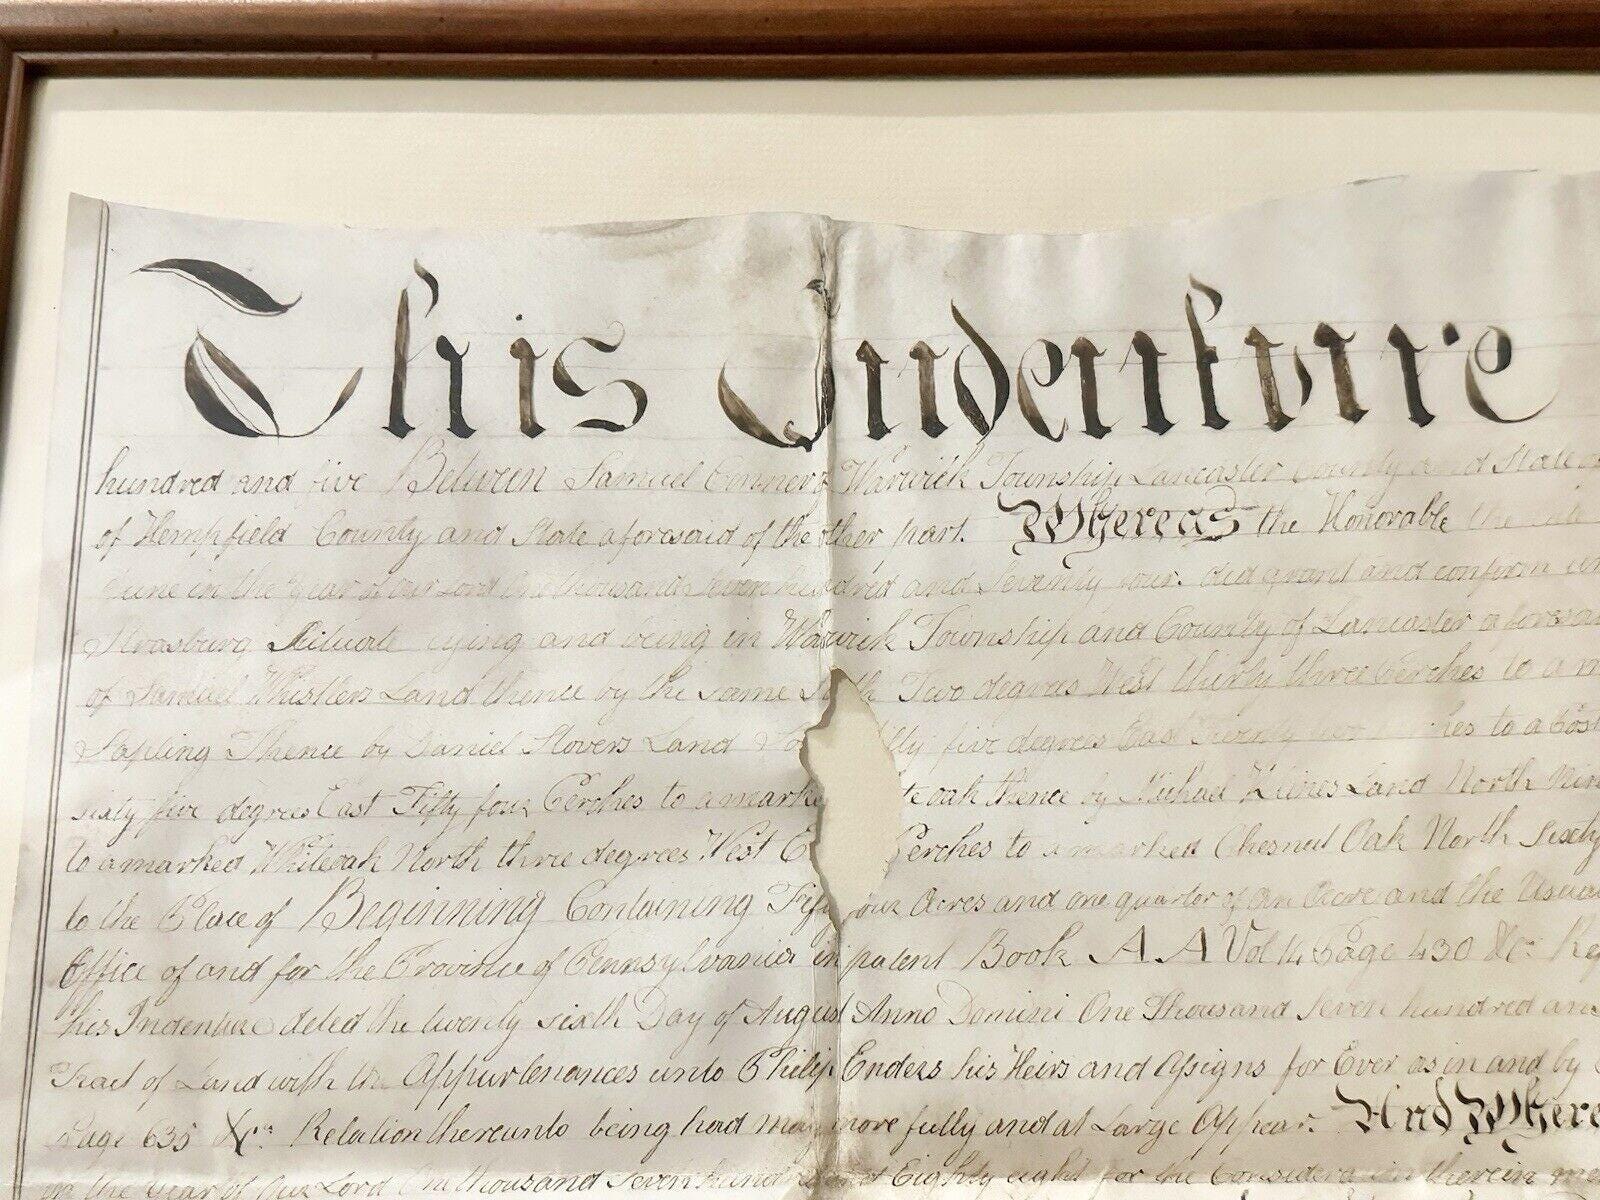 This Indenture
hundred and five Between Samuel Conner of Warwick Township Lancaster County and State
of Hempfield County and State aforesaid of the other part. Whereas the Honorable the
June in the Year of our Lord One thousand Seven hundred and Seventy four. did grant and confirm
Strasburg Situate lying and being in Warwick Township and County of Lancaster aforesa
of Samuel Whistlers Land thence by the same So th Two degrees West thirty three Perches to a m
Sapling Thence by Daniel Stovers Land So fty five degrees East Twenty two ches to a Post
sixty five degrees East Fifty four Perches to a marke te oak thence by Michael Kline's Land North Nin
to a marked Whiteoak North three degrees West E Perches to a marked Chesnut Oak North Sixty
to the Place of Beginning Containing Fifty four Acres and one quarter of an Acre and the Usual
Office of and for the Province of Pennsylvania in patent Book A A Vol 14 Page 430 &c. Re
his Indenture dated the twenty sixth Day of August Anno Domini One Thousand Seven hundred an
Tract of Land with the Appurtenances unto Philip Enders his Heirs and Assigns for Ever as in and by
Page 635 &c. Relation thereunto being had may more fully and at Large Appear. And Where
in the Year of our Lord One thousand Seven hundred and Eighty eight for the Consideration therein me